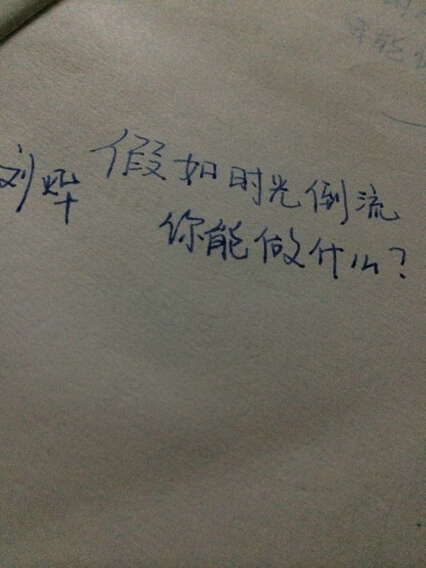 刘烨
假如时光倒流
你能做什么?